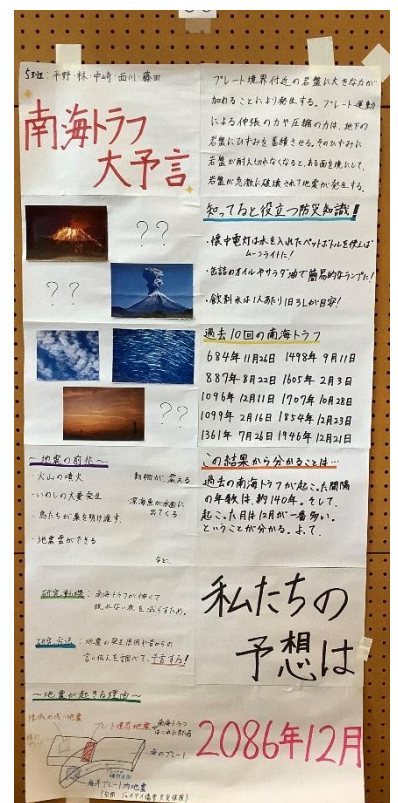 5班:平野・林・中崎・西川・藤田
南海トラフ
大予言
??
??
??
〜地震の前兆〜
・火山の噴火
・動物が、震える
・いのしの大量発生
・深海魚が水面に
出てくる
・鳥たちが巣を明け渡す。
・地震雲ができる
など、
研究動機:南海トラフが怖くて
眠れない夜を減らすため。
研究方法:地震の発生原因や昔からの
言い伝えを調べて、予言する!
〜地震が起きる理由〜
プレート境界地震
南海トラフ
はこれに当たる
海のプレート
海洋プレート内地震
プレート境界付近の岩盤に大きな力が
加わることにより発生する。プレート運動
による伸張の力や圧縮の力は、地下の
岩盤にひずみを蓄積させる。そのひずみに
岩盤が耐え切れなくなると、ある面を境にして、
岩盤が急激に破壊されて地震が発生する。
知ってると役立つ防災知識!
・懐中電灯は水を入れたペットボトルを使えば
ムーンライトに!
・缶詰のオイルやサラダ油で簡易的なランプに!
・飲料水は1人あたり1日3Lが目安!
過去10回の南海トラフ
684年 11月26日 1498年 9月11日
887年 8月22日 1605年 2月3日
1096年 12月11日 1707年 10月28日
1099年 2月16日 1854年 12月23日
1361年 7月26日 1946年 12月21日
この結果から分かることは…
過去の南海トラフが起こった間隔
の年数は、約140年。そして、
起こった月は12月が一番多い。
ということが分かる。よって、
私たちの
予想は
2086年12月